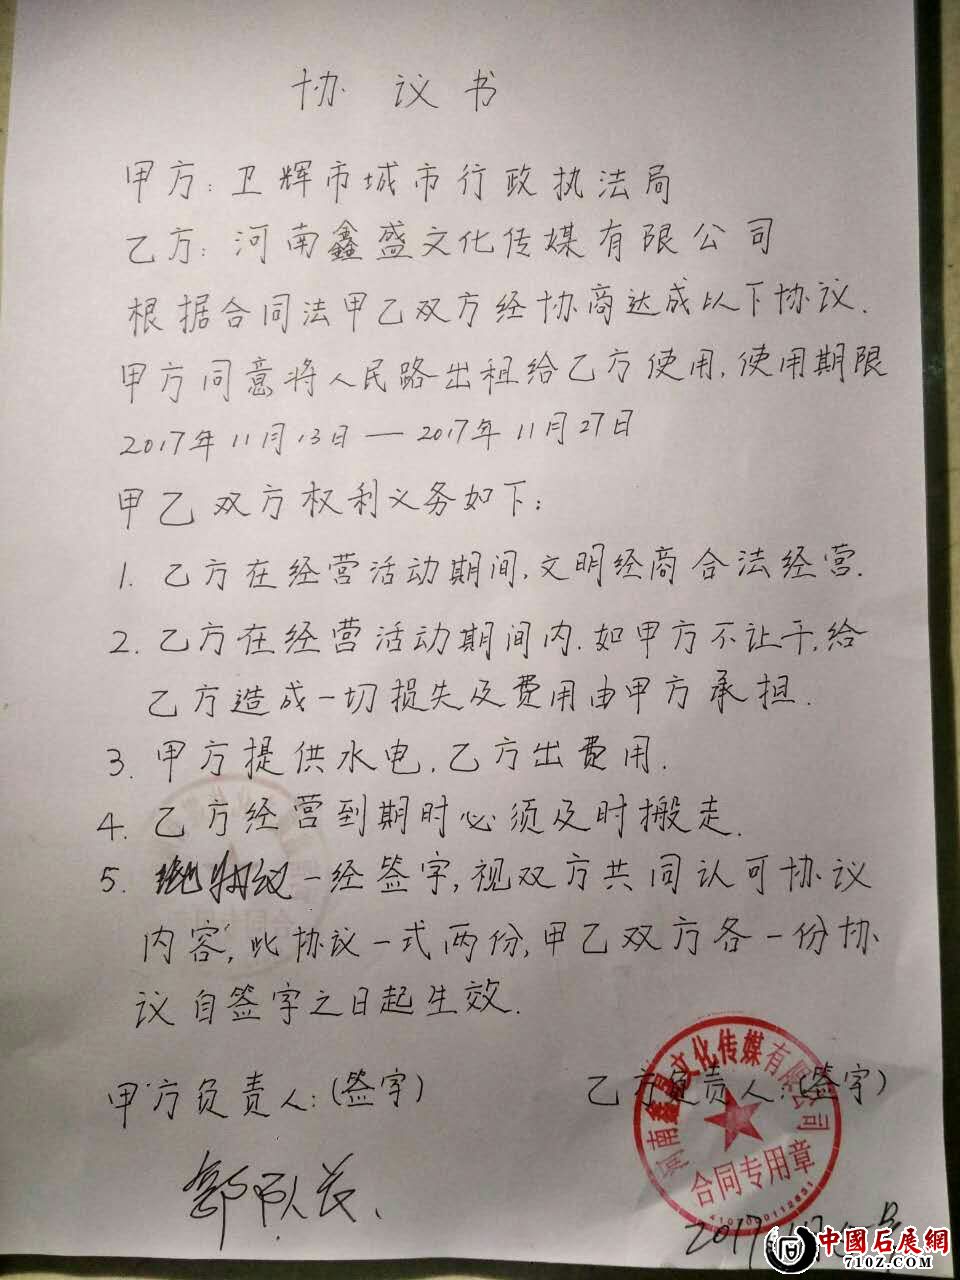 协议书
甲方:卫辉市城市行政执法局
乙方:河南鑫盛文化传媒有限公司
根据合同法甲乙双方经协商达成以下协议.
甲方同意将人民路出租给乙方使用,使用期限
2017年11月13日—2017年11月27日
甲乙双方权利义务如下:
1.乙方在经营活动期间,文明经商合法经营.
2.乙方在经营活动期间内.如甲方不让干,给
乙方造成一切损失及费用由甲方承担.
3.甲方提供水电,乙方出费用.
4.乙方经营到期时必须及时搬走.
5.一经签字,视双方共同认可协议
内容,此协议一式两份,甲乙双方各一份协
议自签字之日起生效.
甲方负责人:(签字)
乙方负责人:(签字)
河南鑫 文化传媒有限公司
合同专用章
队长.
2017
中國石展網
710Z.COM